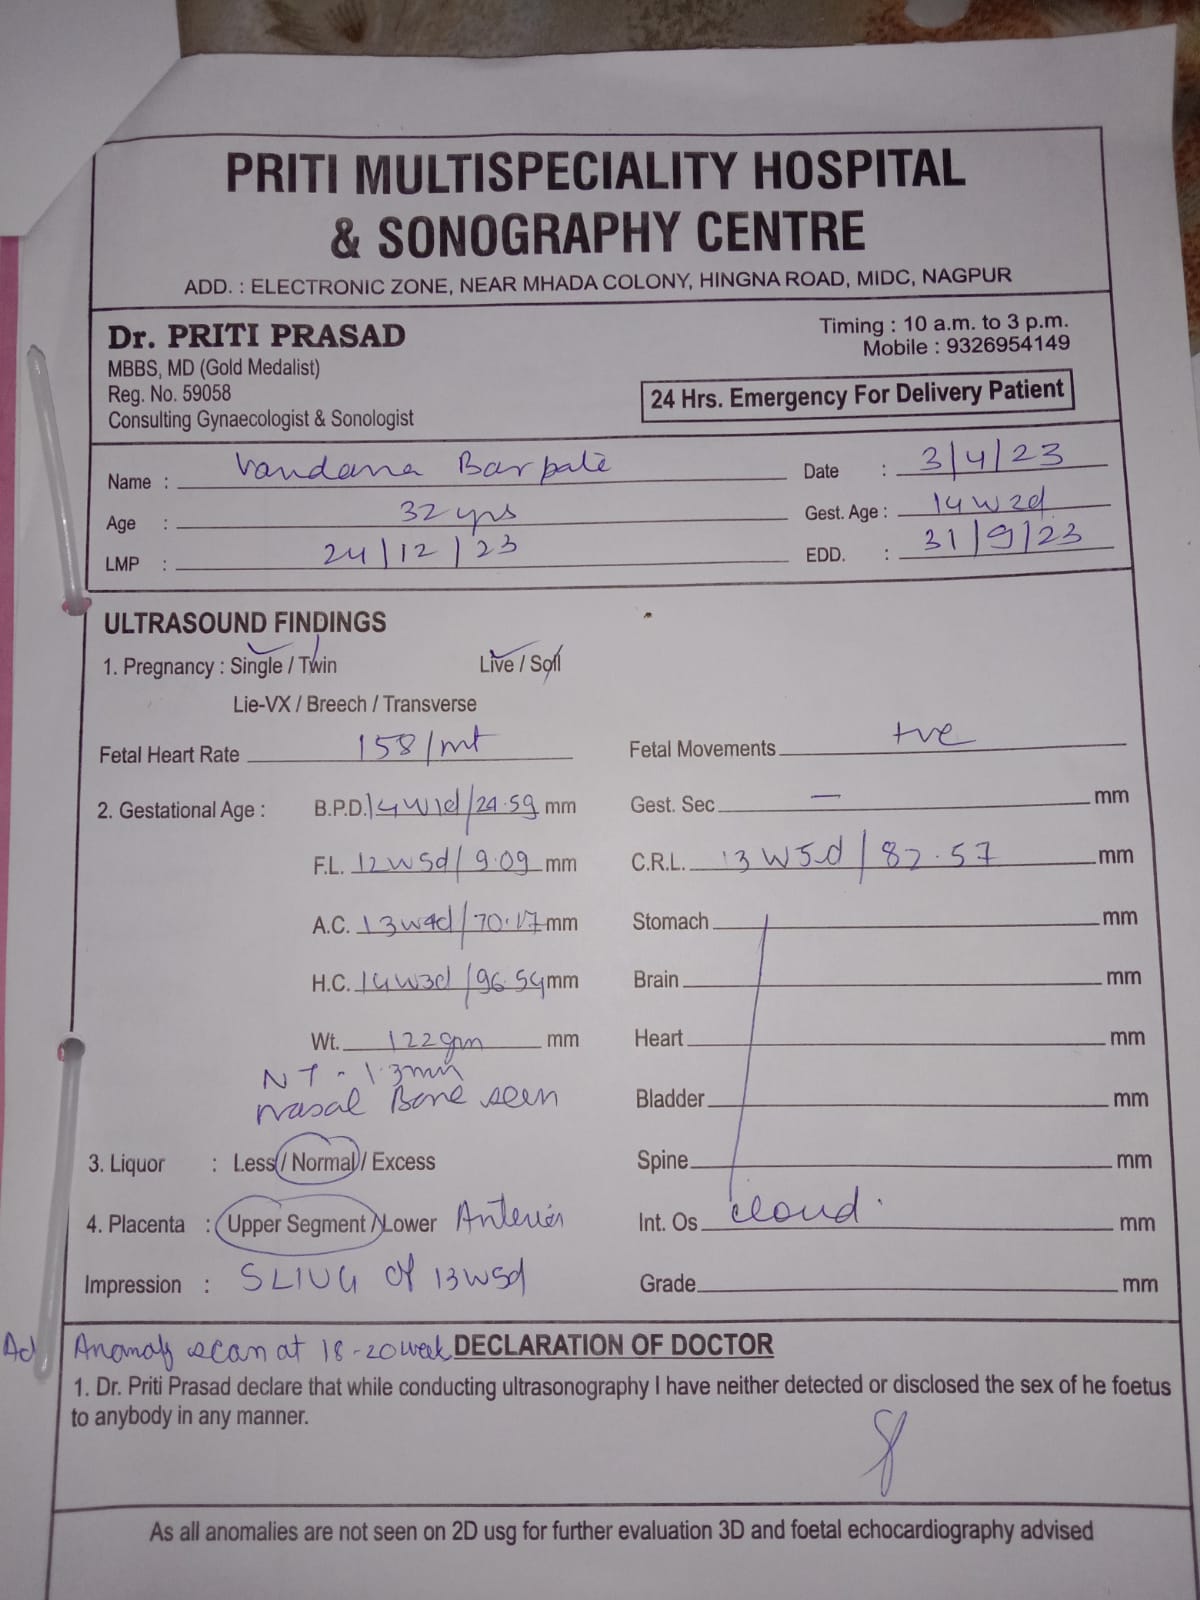 PRITI MULTISPECIALITY HOSPITAL
& SONOGRAPHY CENTRE
ADD. : ELECTRONIC ZONE, NEAR MHADA COLONY, HINGNA ROAD, MIDC, NAGPUR
Dr. PRITI PRASAD
MBBS, MD (Gold Medalist)
Reg. No. 59058
Consulting Gynaecologist & Sonologist
Timing : 10 a.m. to 3 p.m.
Mobile : 9326954149
24 Hrs. Emergency For Delivery Patient
Name : Vandana Barpate
Date : 3/4/23
Age : 32 yrs
Gest. Age : 14w2d
LMP : 24/12/23
EDD. : 31/9/23
ULTRASOUND FINDINGS
1. Pregnancy : Single / Twin Live / Sofl
Lie-VX / Breech / Transverse
Fetal Heart Rate 158/mt Fetal Movements +ve
2. Gestational Age : B.P.D. 14w1d/24.59 mm Gest. Sec — mm
F.L. 12w5d/9.09 mm C.R.L. 13w5d/82.57 mm
A.C. 13w4d/70.17 mm Stomach mm
H.C. 14w3d/96.54 mm Brain mm
Wt. 122gm mm Heart mm
NT - 1.3mm
Nasal Bone seen
Bladder mm
3. Liquor : Less / Normal / Excess Spine mm
4. Placenta : Upper Segment / Lower Anterior Int. Os closed mm
Impression : SLIUG of 13w5d Grade mm
Ad Anomaly scan at 18-20 week DECLARATION OF DOCTOR
1. Dr. Priti Prasad declare that while conducting ultrasonography I have neither detected or disclosed the sex of he foetus
to anybody in any manner.
As all anomalies are not seen on 2D usg for further evaluation 3D and foetal echocardiography advised